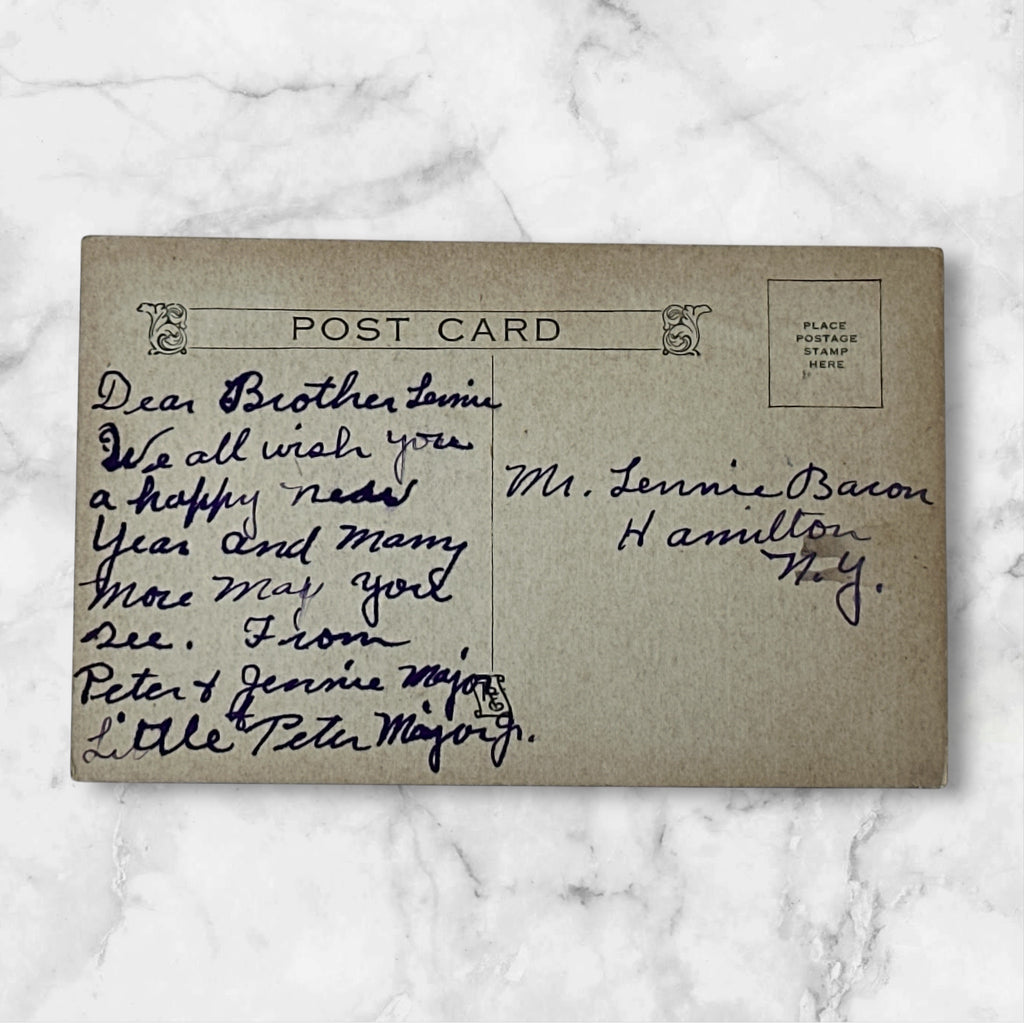 POST CARD
PLACE
POSTAGE
STAMP
HERE
Dear Brother Lennie
We all wish you
a happy new
Year and Many
More May you
See. From
Peter & Jennie Major
Little Peter Major Jr.
Mr. Lennie Bacon
Hamilton
N.Y.